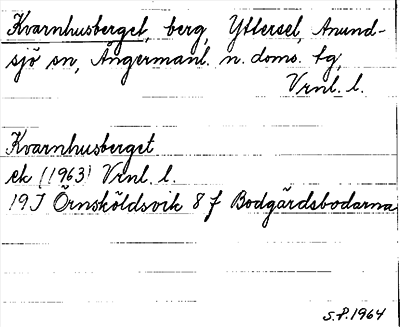 Kvarnhusberget, berg, Yttersel, Anund-
sjö sn, Ångermanl. n. doms. tg,
Vrnl. l.
Kvarnhusberget
ek (1963) Vrnl. l.
19J Örnsköldsvik 8 f Bodgårdsbodarna
S.P. 1964